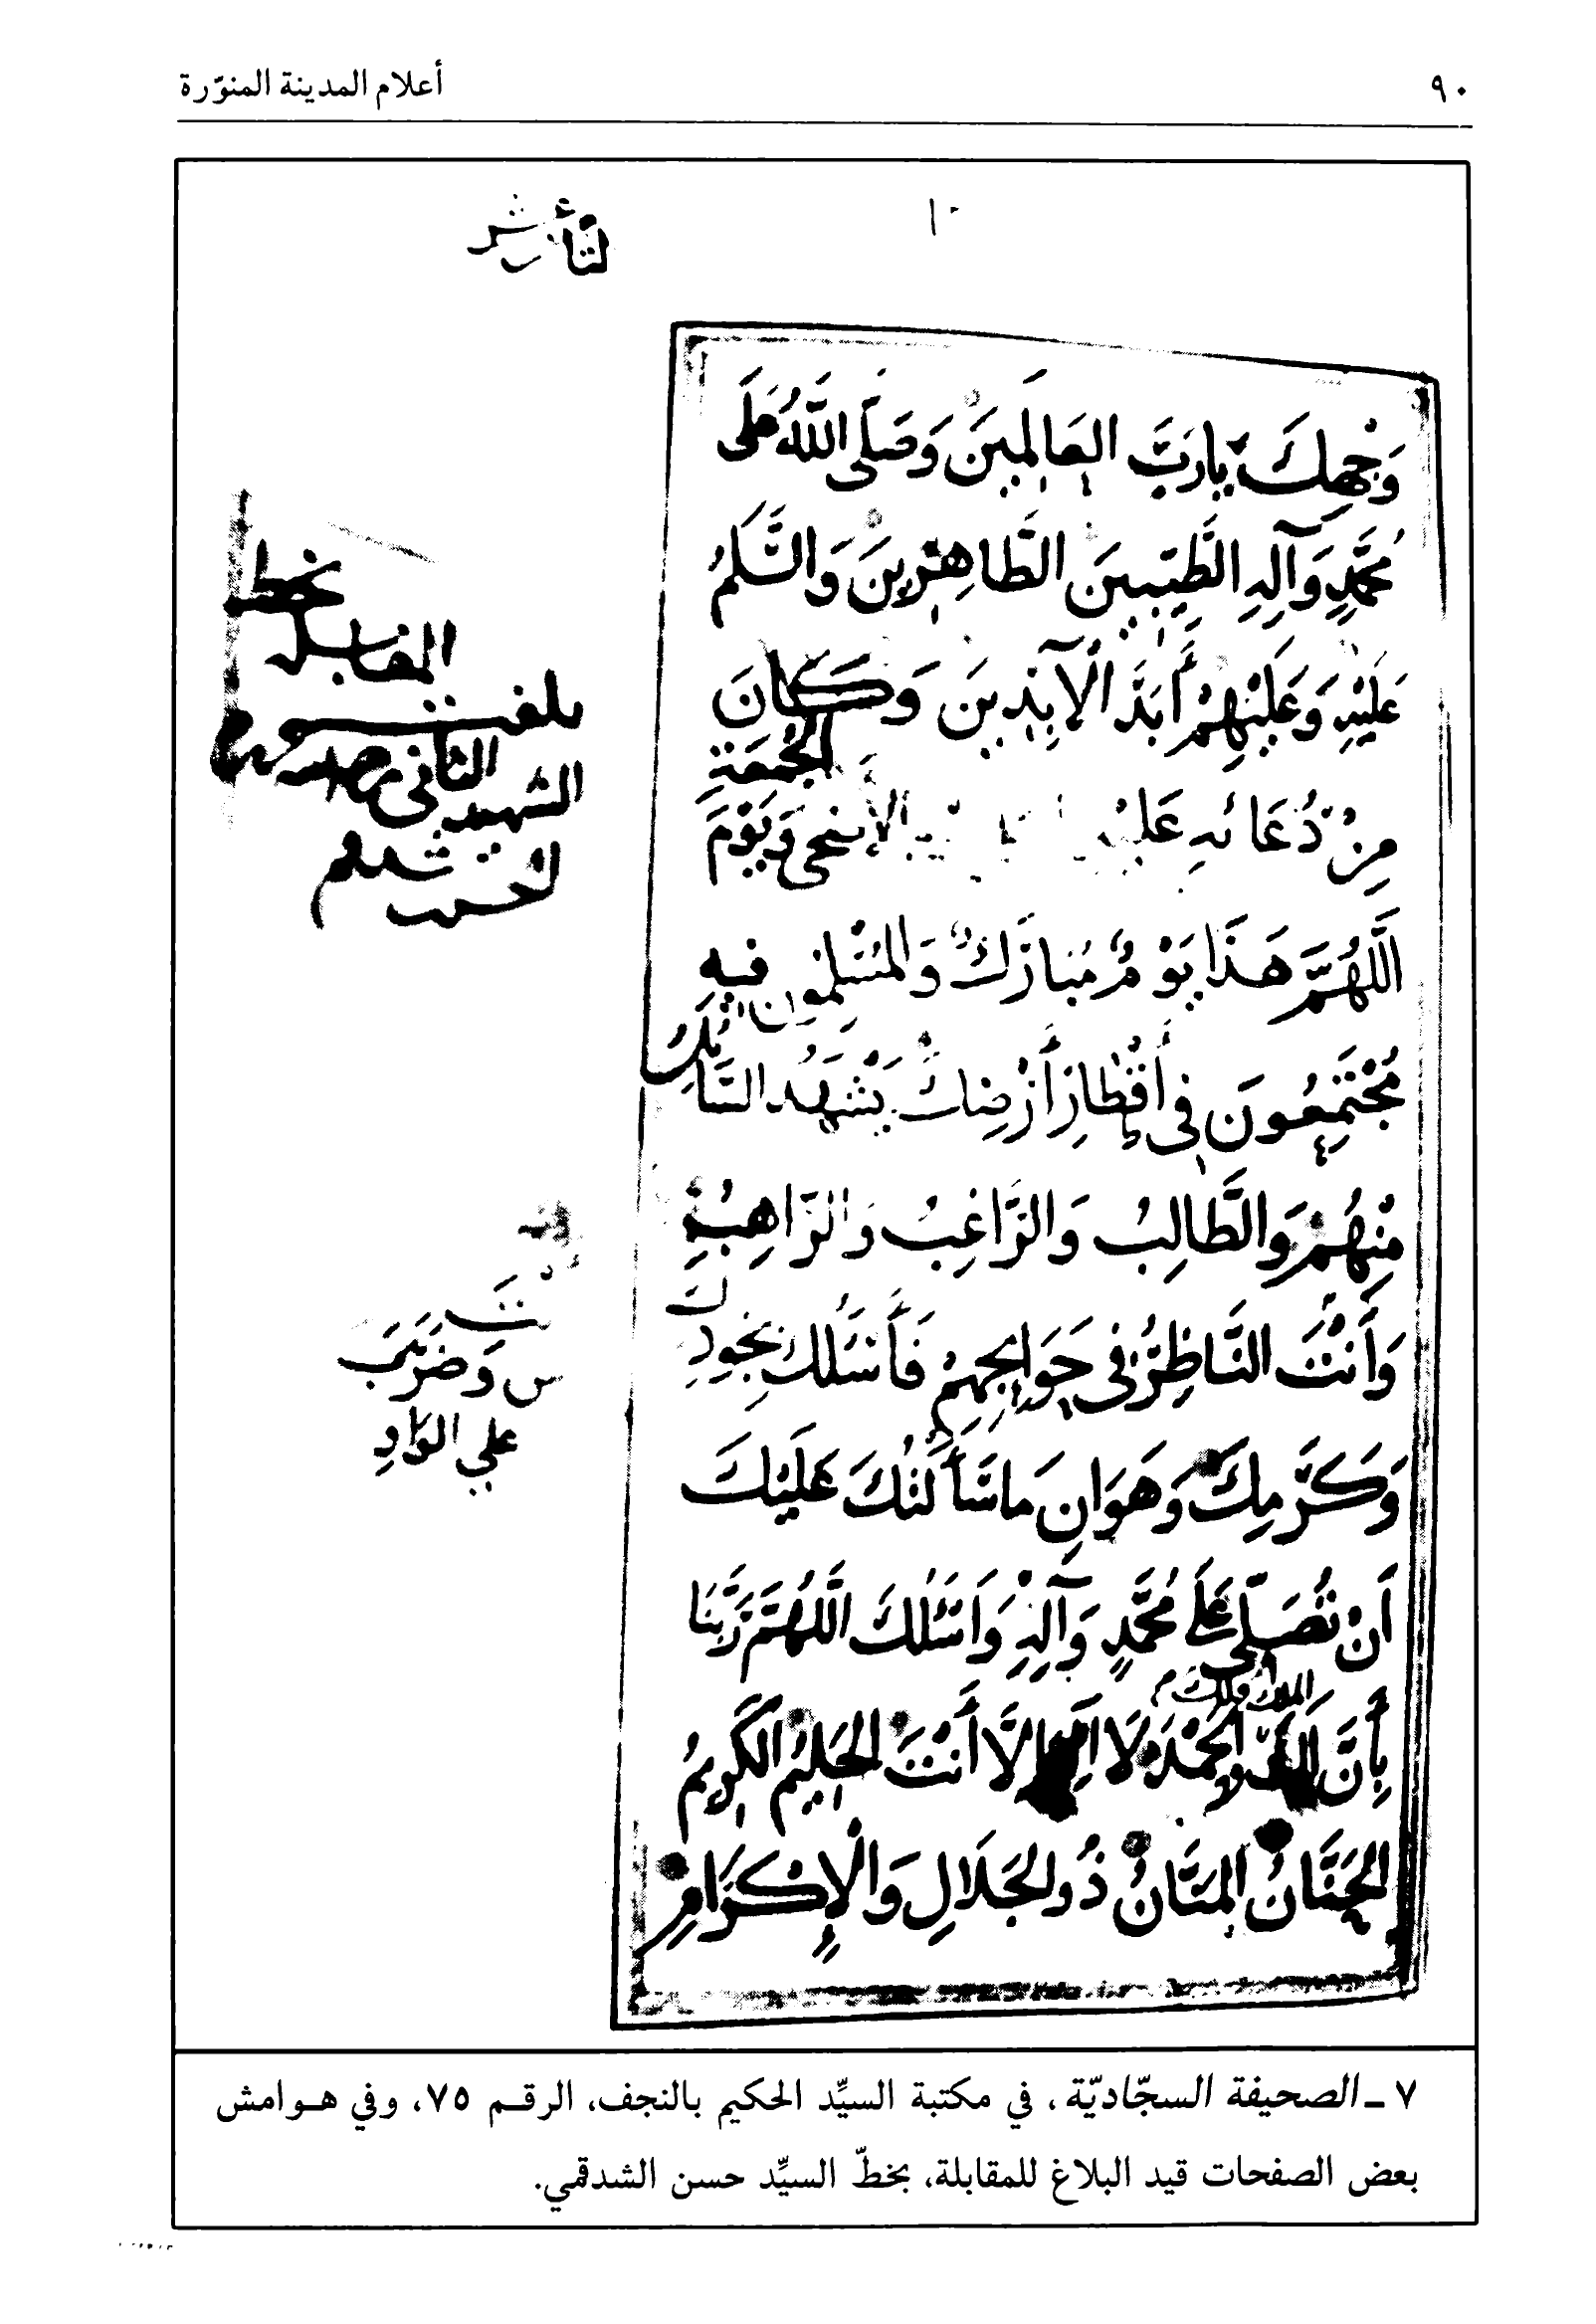 ٩٠
أعلام المدينة المنوّرة
وَجْهِكَ يا رَبَّ العَالَمِينَ وَصَلَّى اللَّهُ عَلَى
مُحَمَّدٍ وَآلِهِ الطَّيِّبِينَ الطَّاهِرِينَ وَالسَّلَمُ
عَلَيْهِ وَعَلَيْهِمْ أَبَدَ الْآبِدِينَ وَكَانَ
مِنْ دُعَائِهِ عَلَيْهِ الأضحى وَيَوْمَ الْجُمَعَةِ
اللَّهُمَّ هَذَا يَوْمٌ مُبَارَكٌ وَالْمُسْلِمُونَ فِيهِ
مُجْتَمِعُونَ فِي أَقْطَارِ أَرْضِكَ يَشْهَدُ السَّائِلُ
مِنْهُمْ وَالطَّالِبُ وَالرَّاغِبُ وَالرَّاهِبُ
وَأَنْتَ النَّاظِرُ فِي حَوَائِجِهِمْ فَأَسْئَلُكَ بِجُودِكَ
وَكَرَمِكَ وَهَوَانِ مَا سَأَلْتُكَ عَلَيْكَ
أَنْ تُصَلِّيَ عَلَى مُحَمَّدٍ وَآلِهِ وَاَسْئَلُكَ اللَّهُمَّ رَبَّنَا
بِأَنَّ لَكَ الْحَمْدَ لَا اِلَهَ إِلَّا أَنْتَ الْحَلِيمُ الْكَرِيمُ
الْحَنَّانُ الْمَنَّانُ ذُو الْجَلَالِ وَالْإِكْرَامِ
بخط
الثاني
الشهيد
وَضَرَبَ
علي
٧ ـ الصحيفة السجّاديّة، في مكتبة السيِّد الحكيم بالنجف، الرقـم ٧٥، وفي هـوامش
بعض الصفحات قيد البلاغ للمقابلة، بخطّ السيِّد حسن الشدقمي.